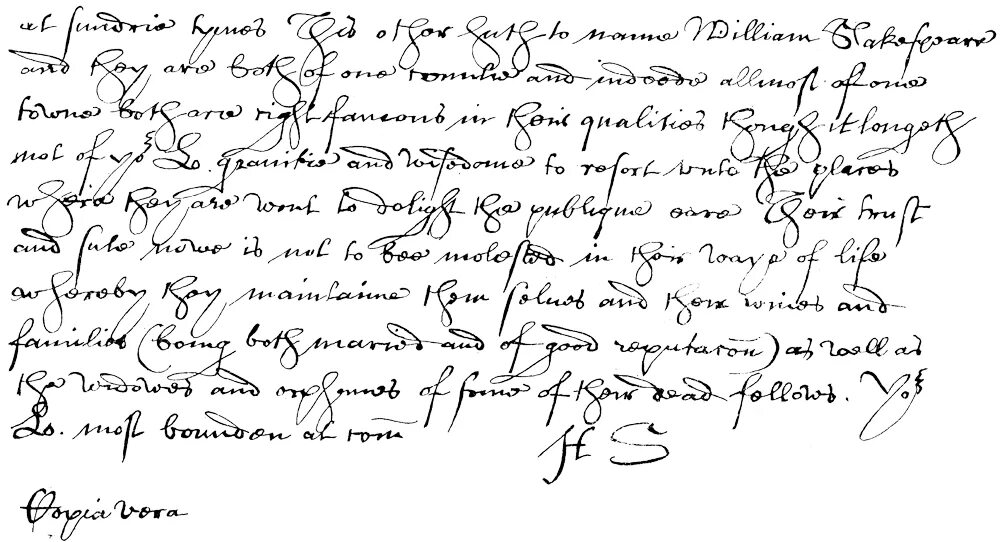 at sundrie tymes This other hath to name William Shakespeare
and they are both of one countie and indeede allmost of one
towne both are right famous in their qualities though it longeth
not of yor Lo. gravitie and wisedome to resort unto the places
where they are wont to delight the publique eare Their trust
and sute nowe is not to bee molested in their waye of life
whereby they maintaine them selves and their wives and
families (being both maried and of good reputacon) as well as
the widowes and orphanes of some of their dead fellows. Yor
Lo. most bounden at com
H S
Copia vera